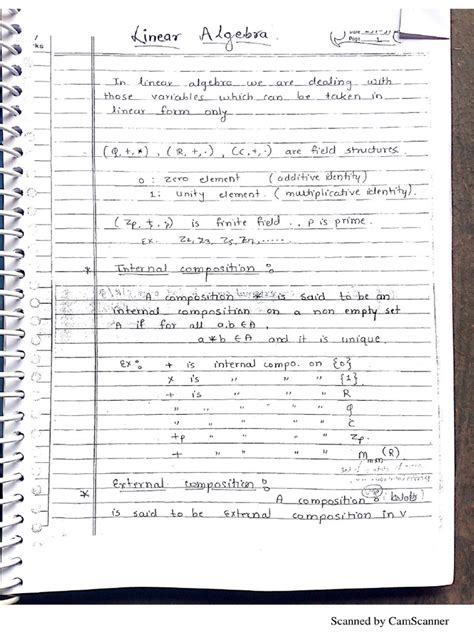 Linear Algebra
Page 1
In linear algebra we are dealing with
those variables which can be taken in
linear form only.
(Q, +, *), (R, +, ·), (C, +, ·) are field structures.
0: zero element (additive identity)
1: unity element (multiplicative identity).
(Zp, +, ·) is finite field.. p is prime.
Ex. Z2, Z3, Z5, Z7, .....
* Internal composition :
A composition * is said to be an
internal composition on a non empty set
A if for all a,b ∈ A,
a*b ∈ A and it is unique.
Ex: + is internal compo. on {0}
× is " " " {1}
+ is " " " R
" " " " Q
" " " " C
+p " " " Zp.
+ " " " Mmxn (R)
* External composition :
A composition
is said to be External composition in V
Scanned by CamScanner